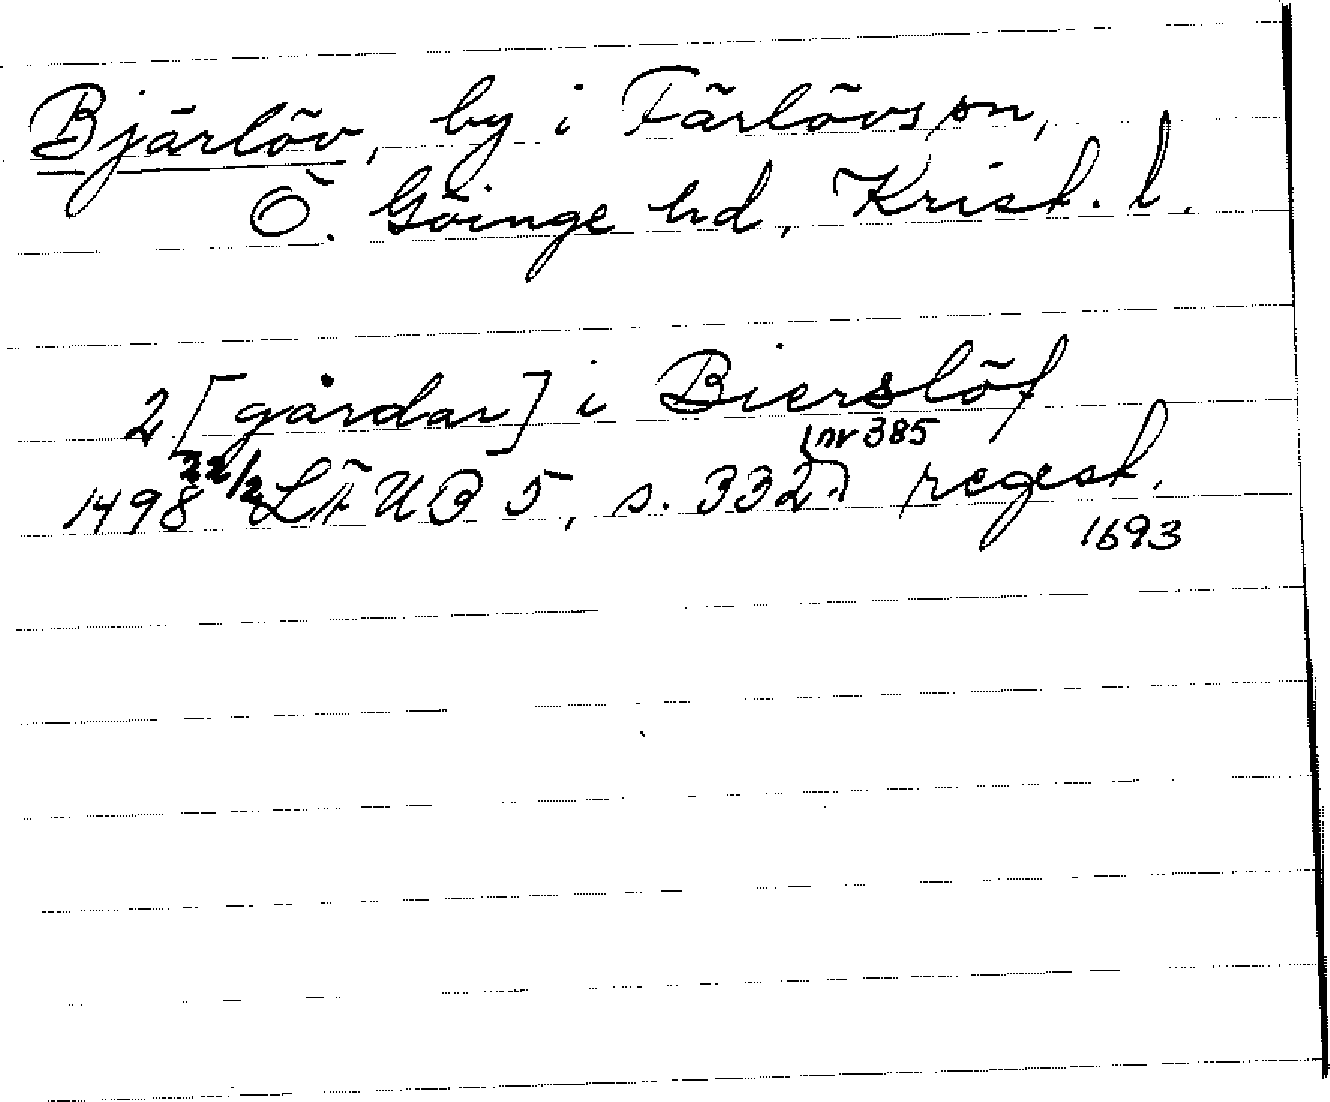 Bjärlöv, by i Färlövs sn,
Ö. Göinge hd, Krist. l.
2 [gårdar] i Bierslöf
1498 22/2 LÄUB 5, s. 332, nr 385 regest.
1693